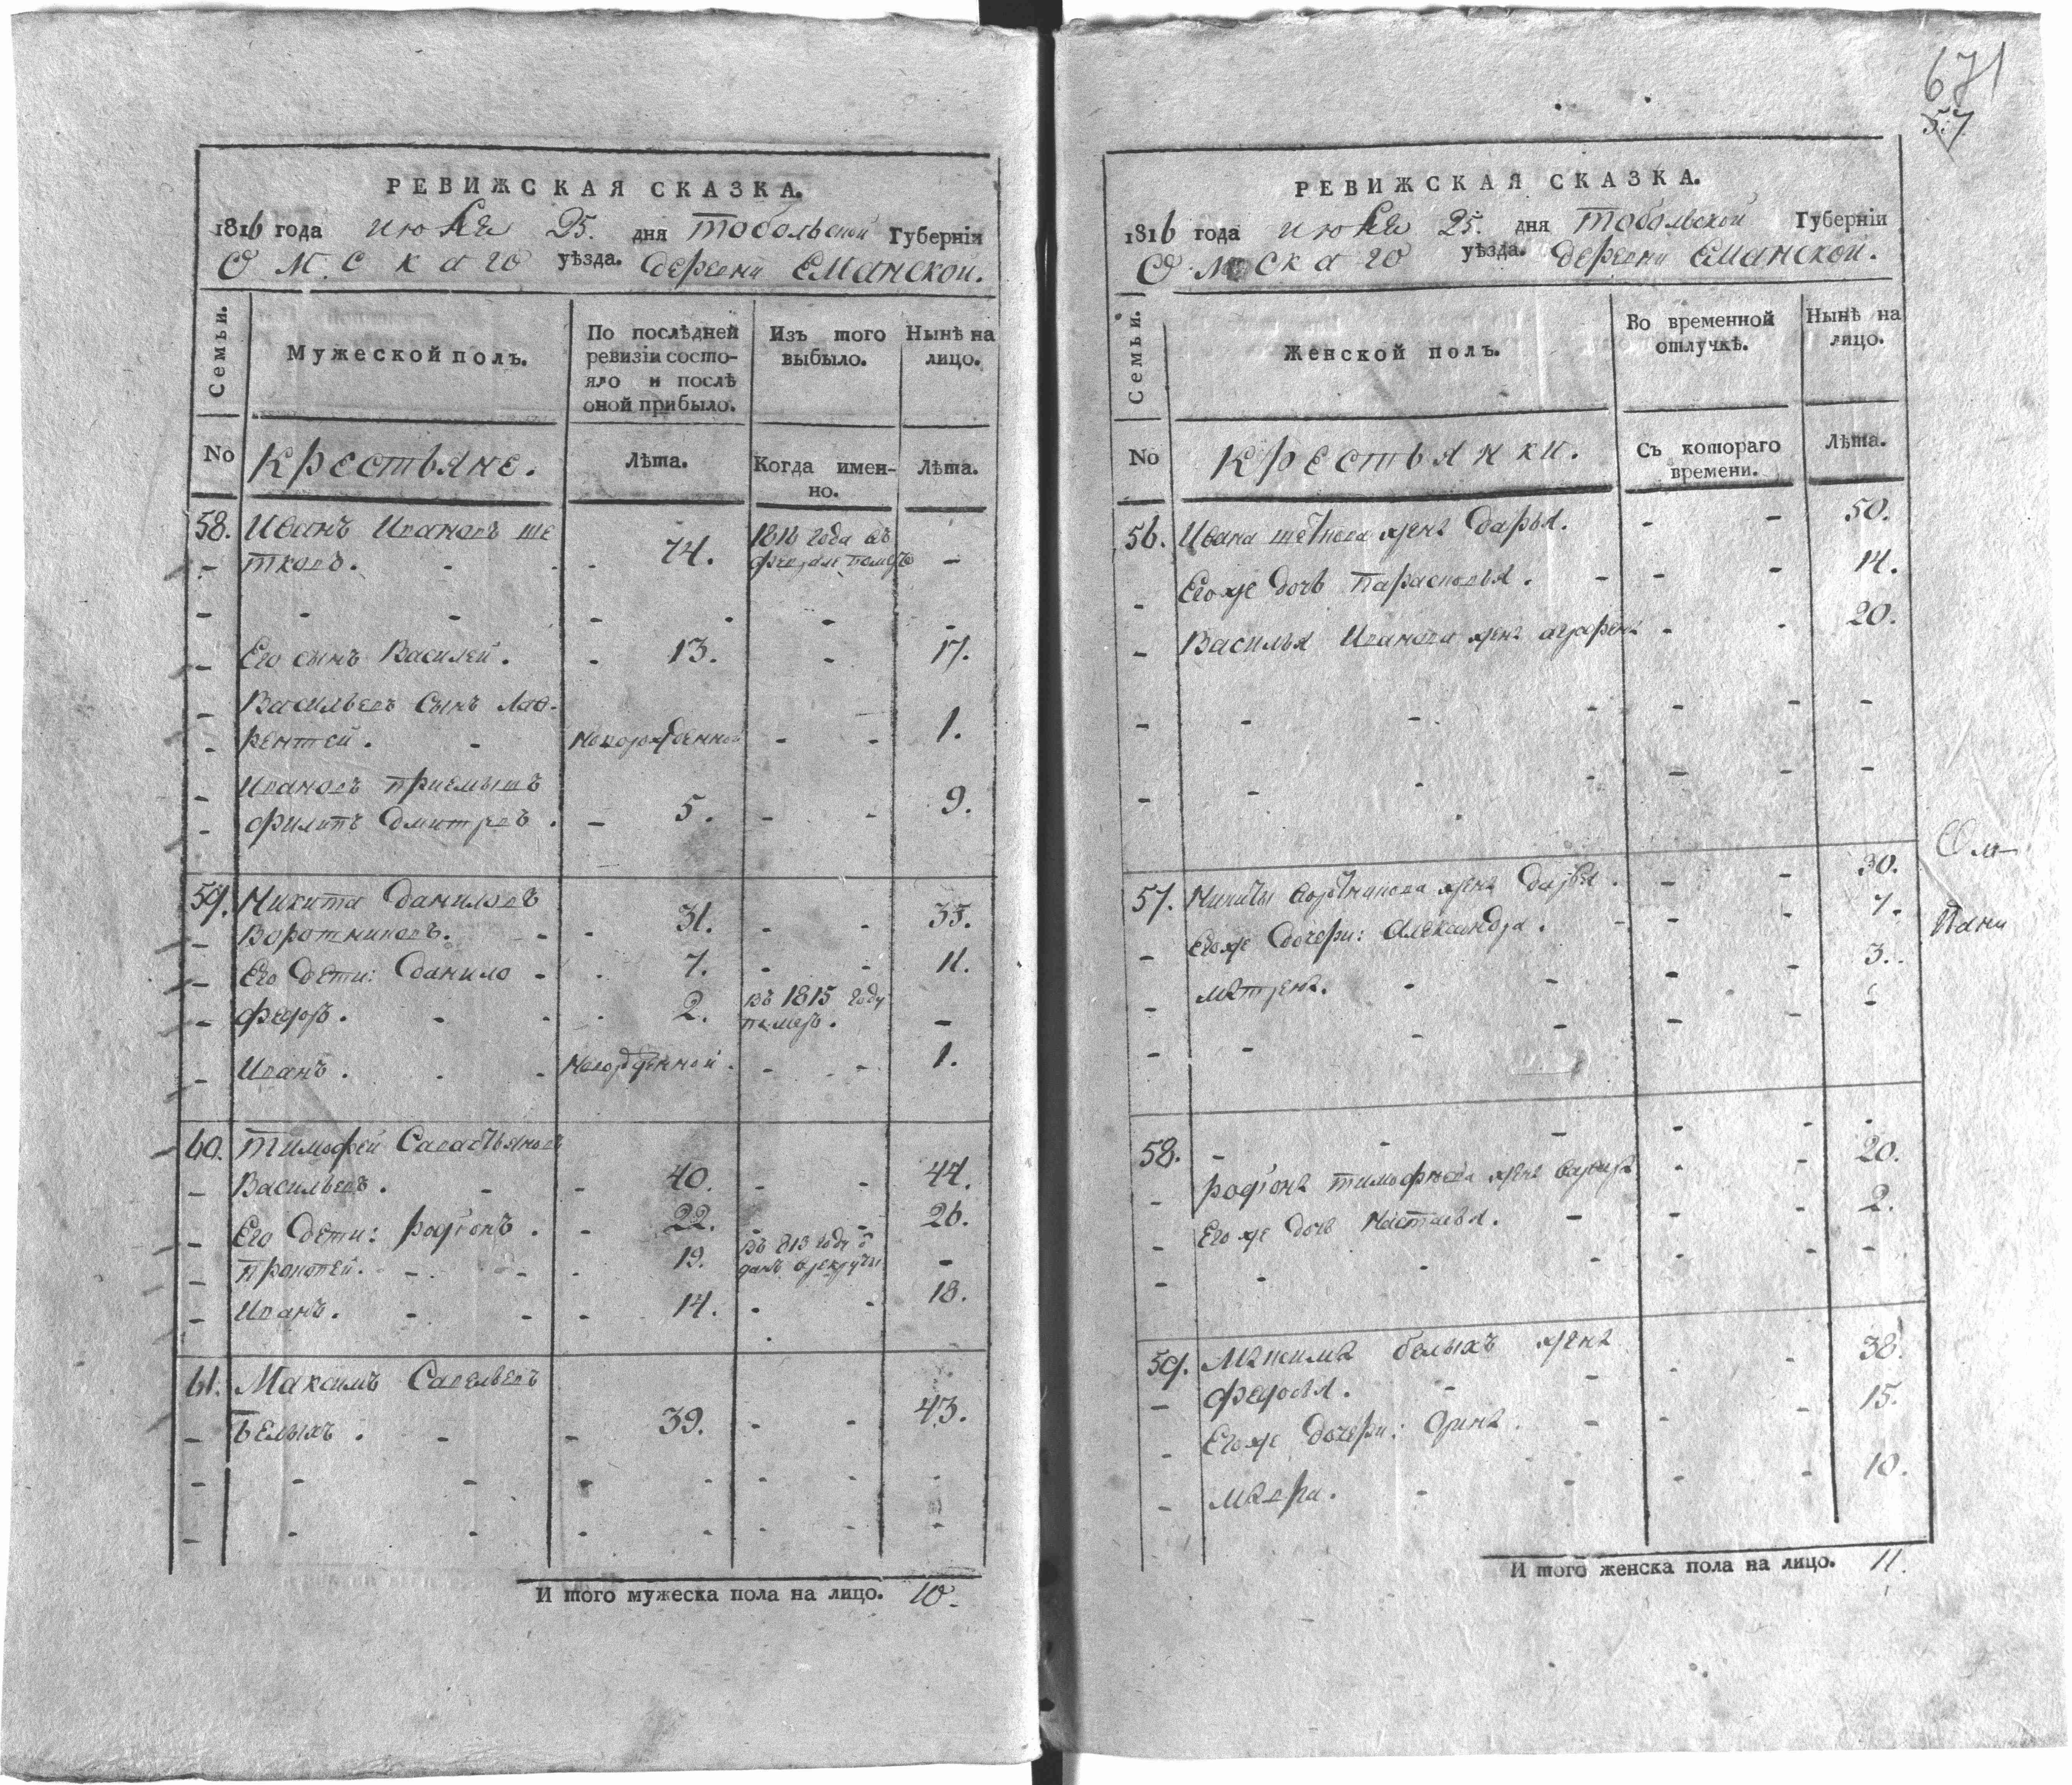 РЕВИЖСКАЯ СКАЗКА.
1816 года июля 25. дня Тобольской Губерніи
Омскаго уѣзда. деревни Еманской.
Семьи.
Мужеской полъ.
По послѣдней ревизіи состояло и послѣ оной прибыло.
Изъ того выбыло.
Нынѣ на лицо.
No
Крестьяне.
Лѣта.
Когда именно.
Лѣта.
58. Иванъ Ивановъ Ще
тковъ. - - 74. 1816 года въ феврале померъ -
Его сынъ Василей. - 13. - 17.
Васильевъ сынъ Лав-
рентей. - Новорожденной - - 1.
Ивановъ приемышъ
Филипъ Дмитревъ. - 5. - - 9.
59. Никита Даниловъ
Воротниковъ. - - 31. - - 35.
Его дети: Данило - - 7. - - 11.
Федоръ. - - 2. въ 1815 году померъ. -
Иванъ. - - Новорожденной. - - 1.
60. Тимофей Савастьяновъ
Васильевъ. - - 40. - - 44.
Его дети: Родіонъ. - 22. - - 26.
Прокопей. - - 19. въ 813 году отданъ в рекруты -
Иванъ. - - 14. - - 18.
61. Максимъ Савельевъ
Белыхъ. - - 39. - - 43.
И того мужеска пола на лицо. 10.
671
57
РЕВИЖСКАЯ СКАЗКА.
1816 года июля 25. дня Тобольской Губерніи
Омскаго уѣзда. деревни Еманской.
Семьи.
Женской полъ.
Во временной отлучкѣ.
Нынѣ на лицо.
No
Крестьянки.
Съ котораго времени.
Лѣта.
56. Ивана Щеткова жена Дарья. - - 50.
Его же дочь Парасковья. - - - 14.
Василья Иванова жена Аграфена - - 20.
57. Никиты Воротникова жена Дарья. - - 30.
Его же дочери: Александра. - - 7.
Матрена. - - - - 3.
58. - - - - -
Родіона Тимофеева жена Варвара - - 20.
Его же дочь Настасья. - - - 2.
59. Максима Белыхъ жена
Федосья. - - - 38.
Его же дочери: Арина. - - - 15.
Мавра. - - - - 10.
И того женска пола на лицо. 11.